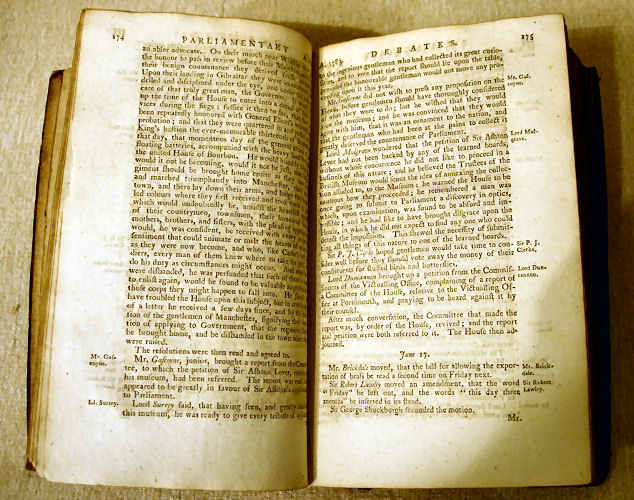 174
PARLIAMENTARY
an abler advocate. On their march near
the honour to pass in review before their
their benign countenance they derived
Upon their landing in Gibraltar they
drilled and disciplined under the eye, and
care of that truly great man, the Governor
up the time of the House to enter into a
vices during the siege; suffice it then to say,
been repeatedly honoured with General Elliott's
probation; and that they were quartered in and
King's bastion the ever-memorable thirteenth
that day, that momentous day of the general
floating batteries, accompanied with the heavy
the united House of Bourbon. He would beg
would it not be becoming, would it not be just,
giment should be brought home entire to
and marched triumphantly into Manchester,
town, and there lay down their arms, and lodge
led colours where they first received and
which would undoubtedly be, amidst the
of their countrymen, townsmen, their
mothers, brothers, and sisters, with the
would, he was confident, be received with
sentiment that could animate or melt the hearts of
as they were now become, and who, like
diers, every man of them knew where to
do his duty as circumstances might occur. And
were disbanded, he was persuaded that such of
to enlist again, would be found to be valuable
these corps they might happen to fall into. He
have troubled the House upon this subject,
of a letter he received a few days since, and by
sion of the gentlemen of Manchester, signifying
tion of applying to Government, that the regiment
be brought home, and be disbanded in the town
were raised.
The resolutions were then read and agreed to.
Mr. Gascoyne, junior, brought a report from the
tee, to which the petition of Sir Ashton Lever,
his museum, had been referred. The report was
appeared to be greatly in favour of Sir Ashton's
to Parliament.
Lord Surrey said, that having seen, and greatly
this museum, he was ready to give every tribute of
Mr. Gas-
coyne.
Ld. Surrey.
A. 1783.
DEBATES.
175
to the ingenious gentleman who had collected its great curio-
sities, and to vote that the report should lie upon the table,
but hoped the honourable gentleman would not move any pro-
position upon it this year.
Mr. Gascoyne did not wish to press any proposition on the
House before gentlemen should have thoroughly considered
what they were to do; but he wished that they would
see the museum; and he was convinced that they would
agree with him, that it was an ornament to the nation, and
that the gentleman who had been at the pains to collect it
greatly deserved the countenance of Parliament.
Lord Mulgrave remarked that the petition of Sir Ashton
Lever had not been backed by any of the learned boards,
without whose concurrence he did not like to proceed in a
business of this nature; and he believed the Trustees of the
British Museum would spurn the idea of annexing the collec-
tion alluded to, to the Museum; he warned the House to be
cautious how they proceeded; he remembered a man was
once going to submit to Parliament a discovery in optics,
which, upon examination, was found to be absurd and im-
possible; and he had like to have brought disgrace upon the
nation, in which he did not expect to find any one who could
detect the imposition. This shewed the necessity of submit-
ting all things of this nature to one of the learned boards.
Sir P. J. Clerke hoped gentlemen would take time to con-
sider well before they should vote away the money of their
constituents for stuffed birds and butterflies.
Lord Duncannon brought up a petition from the Commis-
sioners of the Victualling Office, complaining of a report of
a Committee of the House, relative to the Victualling Of-
fice at Portsmouth, and praying to be heard against it by
their council.
After much conversation, the Committee that made the
report was, by order of the House, revived; and the report
and petition were both referred to it. The House then ad-
journed.
June 17.
Mr. Brickdale moved, that the bill for allowing the expor-
tation of brass be read a second time on Friday next.
Sir Robert Lawley moved an amendment, that the word
"Friday" be left out, and the words "this day three
months" be inserted in its stead.
Sir George Shuckburgh seconded the motion.
Mr.
Mr. Gas-
coyne.
Lord Mul-
grave.
Sir P. J.
Clerke.
Lord Dun-
cannon.
Mr. Brick-
dale.
Sir Robert
Lawley.